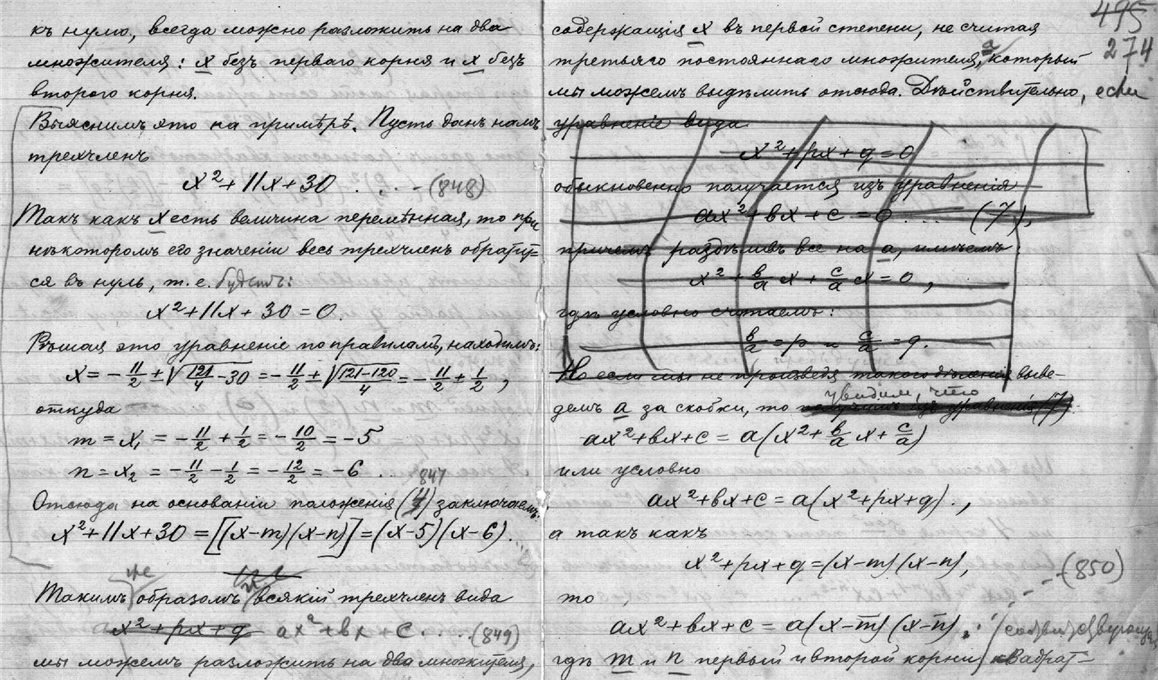 къ нулю, всегда можно разложить на два
множителя: x безъ перваго корня и x безъ
второго корня.
Выяснимъ это на примѣрѣ. Пусть данъ намъ
трехчленъ
x²+11x+30 . . . - (848)
Такъ какъ x есть величина перемѣнная, то при
нѣкоторомъ его значеніи весь трехчленъ обратит-
ся въ нуль, т.е. будетъ:
x²+11x+30=0.
Рѣшая это уравненіе по правиламъ, находимъ:
x=-11/2±√121/4-30=-11/2±√(121-120)/4=-11/2±1/2,
откуда
m=x₁=-11/2+1/2=-10/2=-5
n=x₂=-11/2-1/2=-12/2=-6 ..
847
Отсюда на основаніи положенія (4) заключаемъ:
x²+11x+30=[(x-m)(x-n)]=(x-5)(x-6)...
же
Такимъ образомъ всякій трехчленъ вида
x²+px+q ax²+bx+c . . . . (849)
мы можемъ разложить на два множителя,
495
274
содержащія x въ первой степени, не считая
третьяго постояннаго множителя, a который
мы можемъ выдѣлить отсюда. Дѣйствительно, если
уравненіе вида
x²+px+q=0
обыкновенно получается изъ уравненія
ax²+bx+c=0 .... (7),
причемъ раздѣливъ все на a, имѣемъ:
x²+b/a x+c/a x=0,
гдѣ условно считаемъ:
b/a=p и c/a=q.
Но если мы не произведя такого дѣленія выве-
увидим, что
демъ a за скобки, то получимъ изъ уравненія (7)
ax²+bx+c=a(x²+b/a x+c/a)
или условно
ax²+bx+c=a(x²+px+q).,
а такъ какъ
x²+px+q=(x-m)(x-n),
--(850)
то
ax²+bx+c=a(x-m)(x-n),
гдѣ m и n первый и второй корни квадрат-